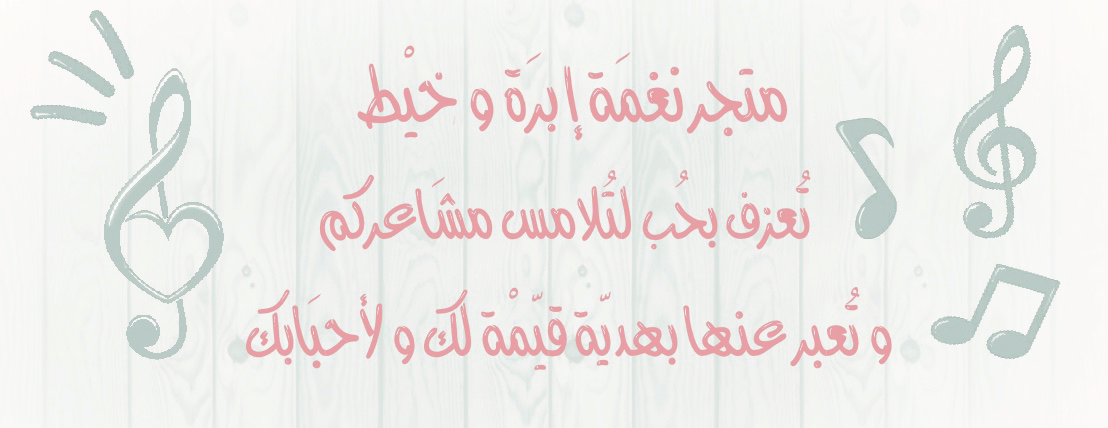 متجر نغمَة إبرَة و خيْط
تُعزف بحُب لتُلامس مشَاعركم
و تُعبر عنها بهديّة قيّمْة لك و لأحبَابك